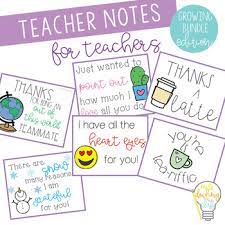 TEACHER NOTES
for teachers
GROWING
BUNDLE
edition
THANKS
FOR BEING AN
out of this
world
TEAMMATE
Just wanted to
point out
how much I
all you do
THANKS
A
latte
There are
snow
many reasons
I am
grateful
for you!
I have all
the heart eyes
for you!
You're